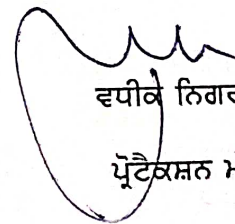 ਵਧੀਕ ਨਿਗਰ
ਪ੍ਰੋਟੈਕਸ਼ਨ ਮ